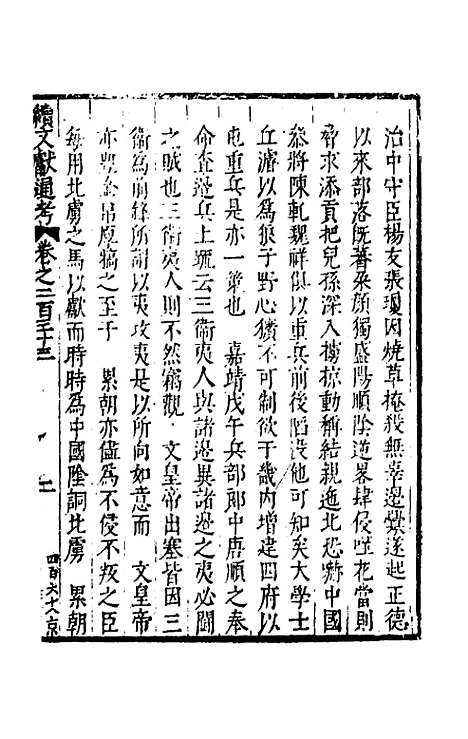 治中守臣楊友張瓊因燒草掩殺無辜邊釁遂起正德
以來部落既蕃朶顔獨盛陽順陰逆畧肆侵噬花當則
脅求添貢把兒孫深入擄掠動稱結親迤北恐嚇中國
叅將陳乾魏祥俱以重兵前後陷没他可知矣大學士
丘濬以為狼子野心猶不可制欲于畿内增建四府以
屯重兵是亦一策也　嘉靖戊午兵部郎中唐順之奉
命查邊兵上疏云三衛夷人與諸邊異諸邊之夷必闘
之賊也三衛夷人則不然竊觀　文皇帝出塞皆因三
衛為前鋒所謂以夷攻夷是以所向如意而　文皇帝
亦豐金帛厚犒之至于　累朝亦儘為不侵不叛之臣
每用北虜之馬以獻而時時為中國陰詗北虜　累朝
續文獻通考　卷之二百三十三
四百六十八　京